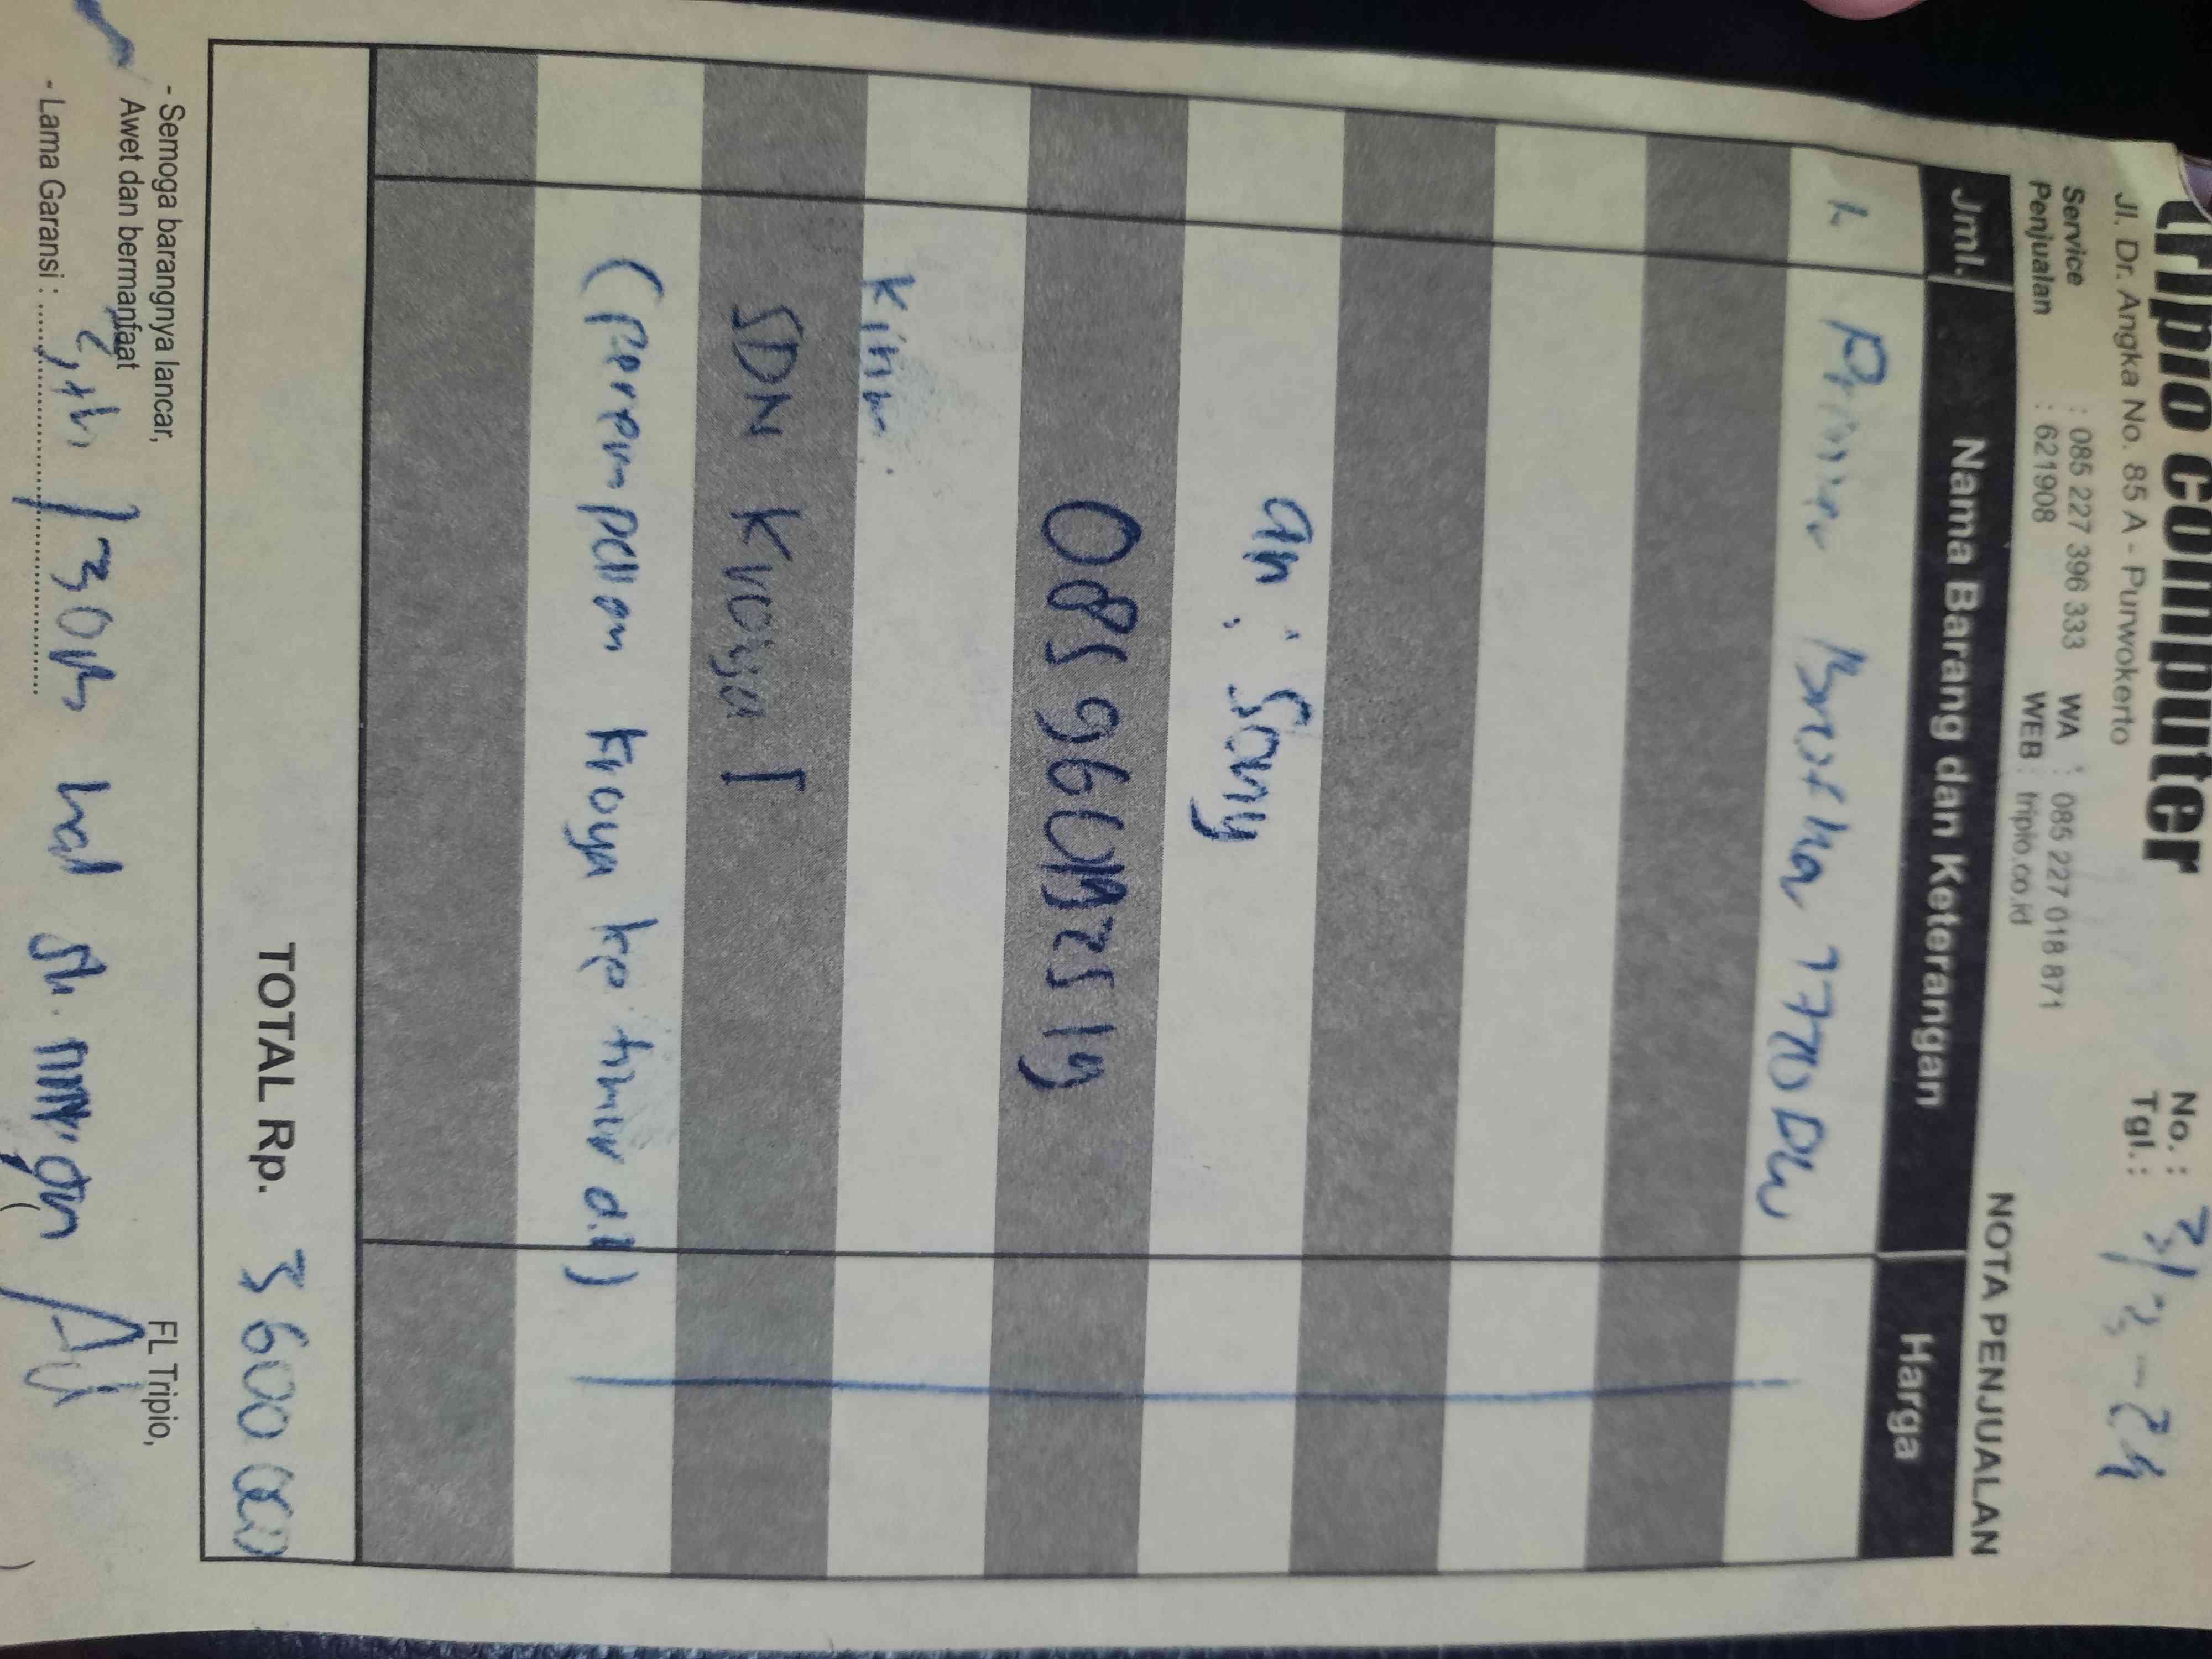 tripio computer
Jl. Dr. Angka No. 85 A - Purwokerto
Service : 085 227 396 333 WA : 085 227 018 871
Penjualan : 621908 WEB : tripio.co.id
No. :
Tgl. :
NOTA PENJUALAN
Jml. Nama Barang dan Keterangan Harga
1 Printer Brother T720 DW
an : Sony
Kirim
SDN Kroya 1
(perempatan Kroya ke timur dl)
TOTAL Rp. 3 600 000
- Semoga barangnya lancar,
Awet dan bermanfaat
- Lama Garansi :
FL Tripio,